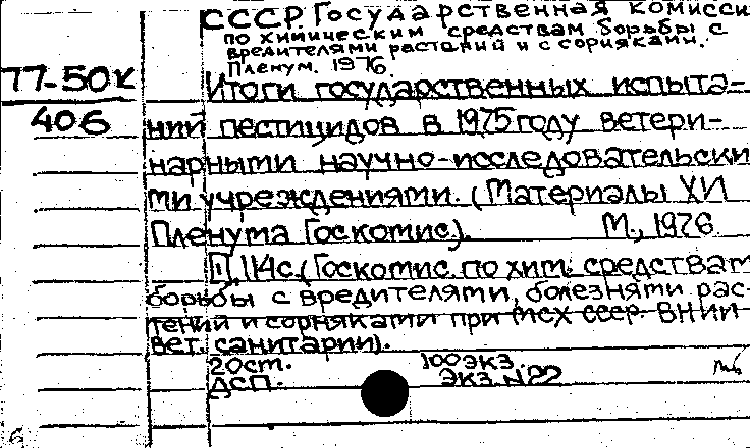 СССР. Государственная комисси
по химическим средствам борьбы с
вредителями растений и с сорняками.
Пленум. 1976.
77-50к
406
Итоги государственных испыта-
ний пестицидов в 1975 году ветери-
нарными научно-исследовательски
ми учреждениями. (Материалы XИ
Пленума Госкомис.). М., 1976
114с. (Госкомис. по хим. средствам
борьбы с вредителями, болезнями рас-
тений и сорняками при МСХ СССР. ВНИИ
вет. санитарии).
20 ст. 100 экз.
ДСП. Экз. №22
6